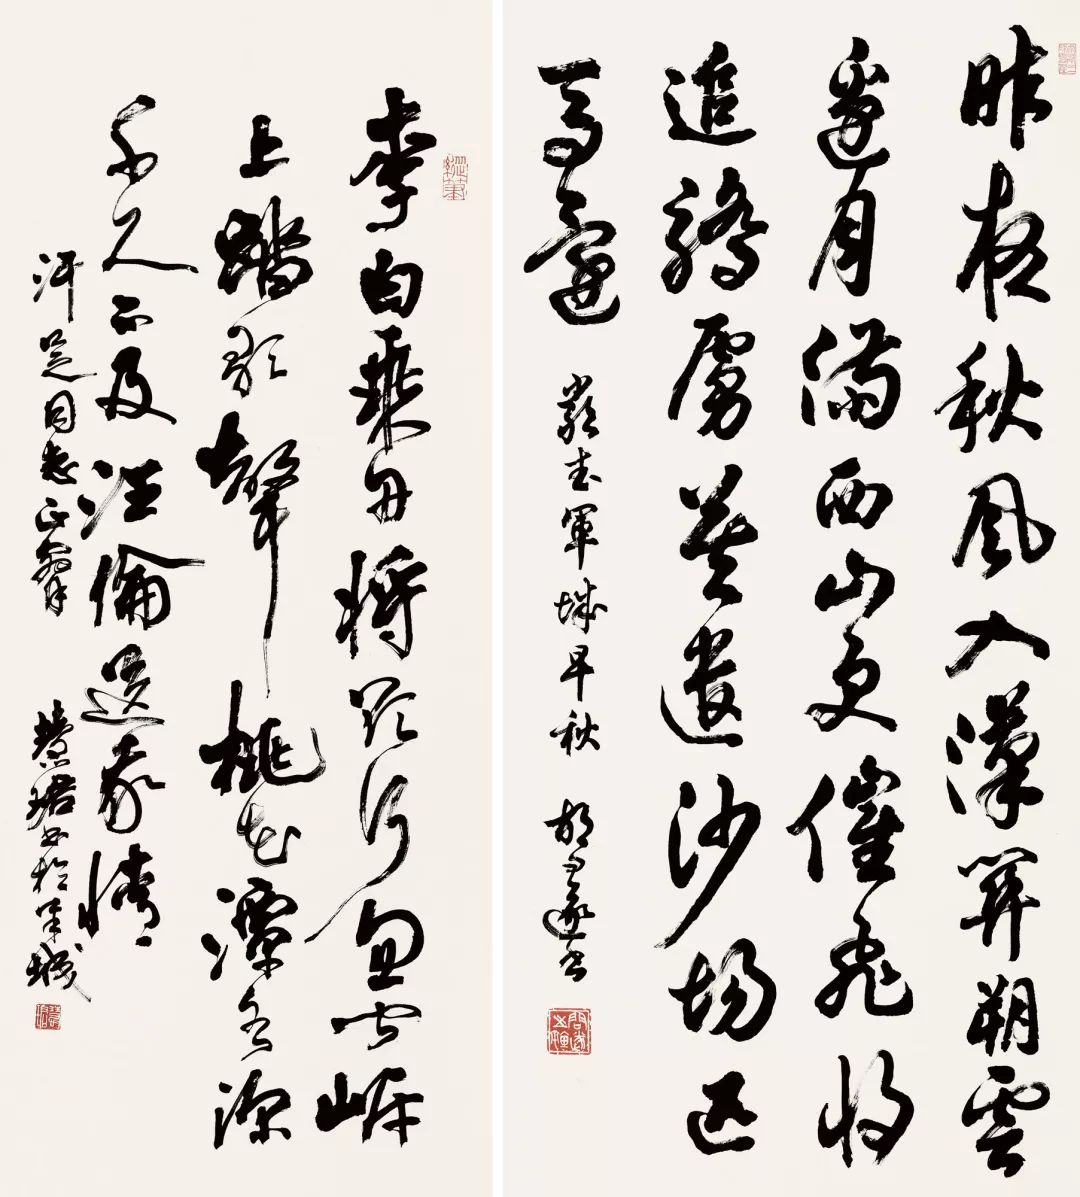 昨夜秋風入漢關朔雲
邊月滿西山更催飛將
追驕虜莫遣沙場匹
馬還 嚴武軍城早秋 胡問遂書
李白乘舟將欲行忽聞岸
上踏歌聲桃花潭水深
千尺不及汪倫送我情
同志正
書於